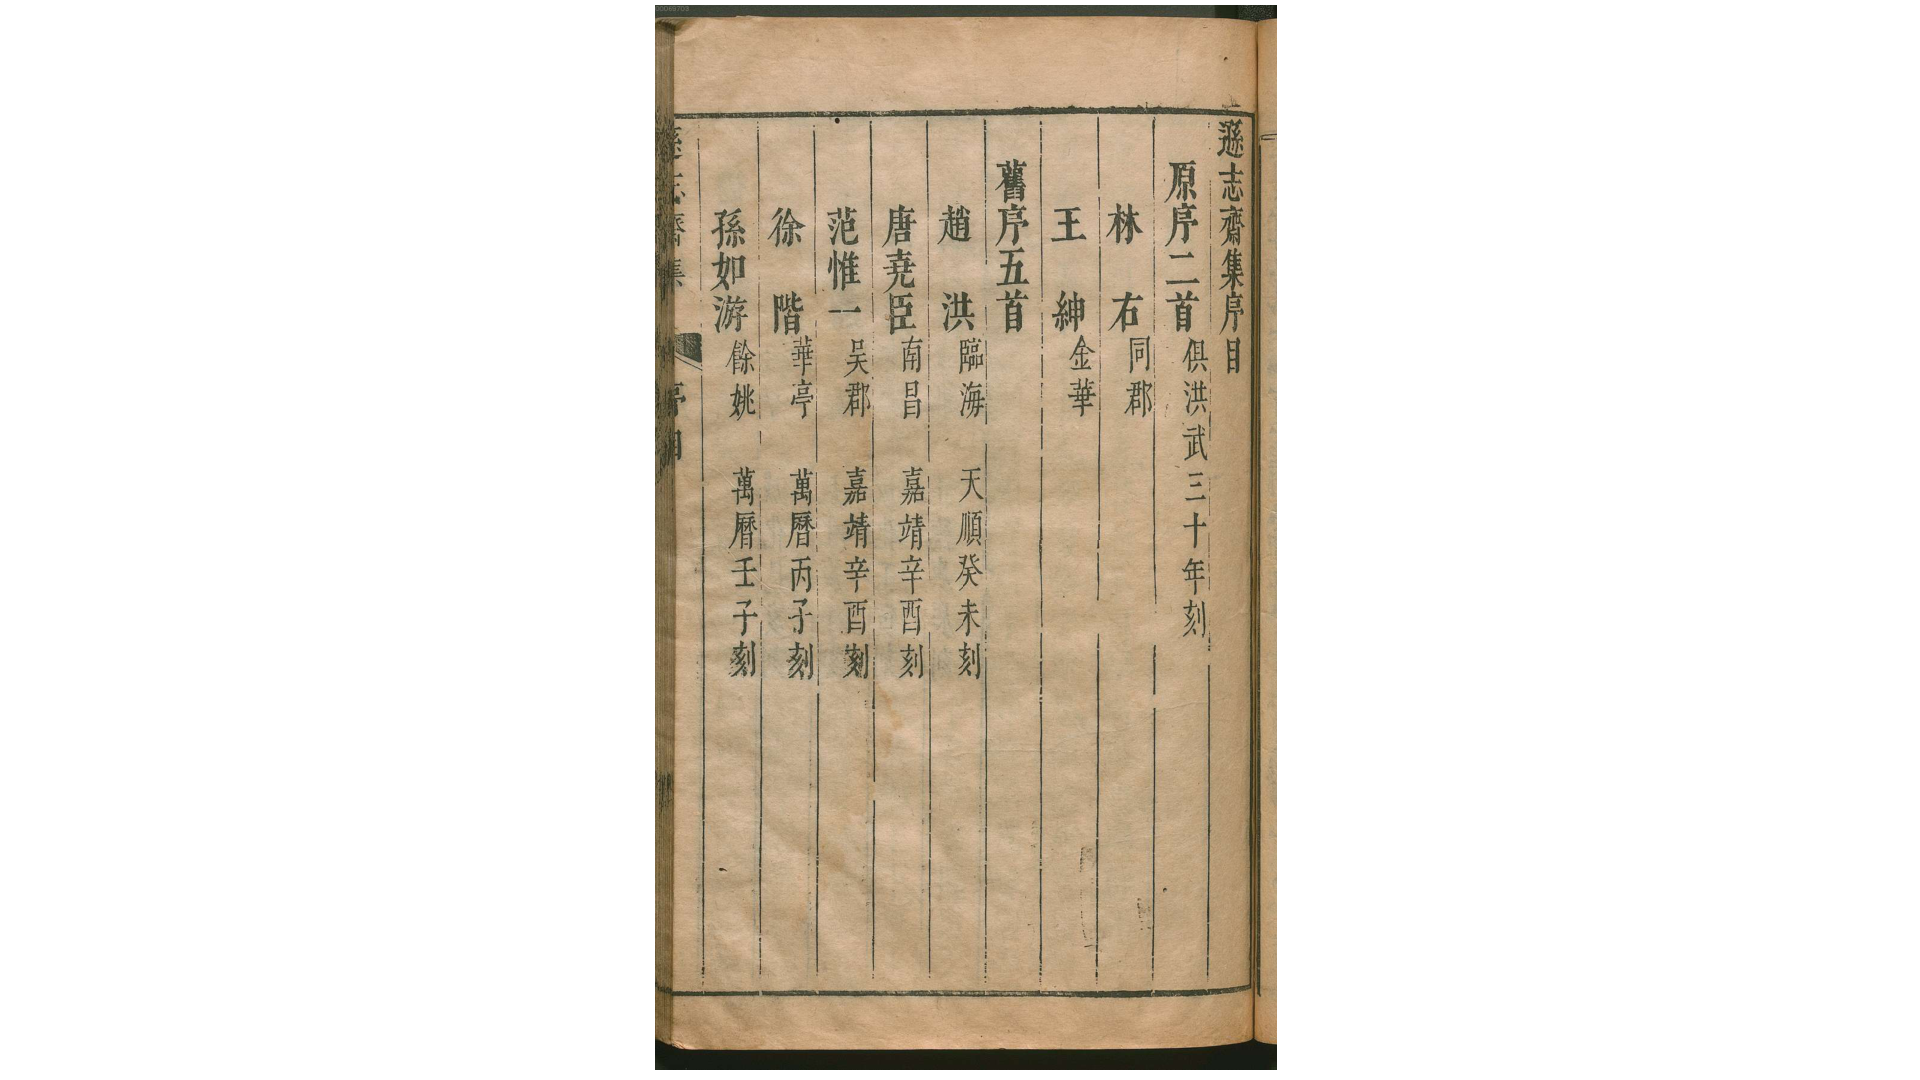 遜志齋集序目
原序二首俱洪武三十年刻
林右同郡
王紳金華
舊序五首
趙洪臨海 天順癸未刻
唐堯臣南昌 嘉靖辛酉刻
范惟一吳郡 嘉靖辛酉刻
徐階華亭 萬曆丙子刻
孫如游餘姚 萬曆壬子刻
遜志齋集 序目